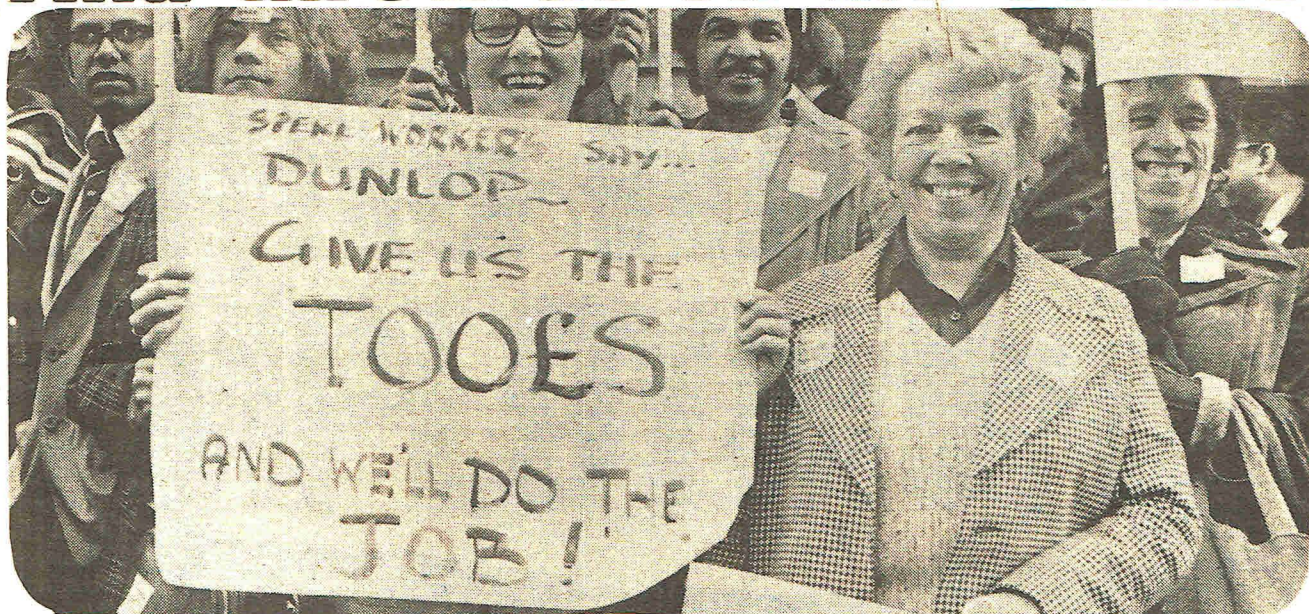 SPEKE WORKER'S SAY...
DUNLOP~
GIVE US THE
TOO£S
AND WE'LL DO THE
JOB!